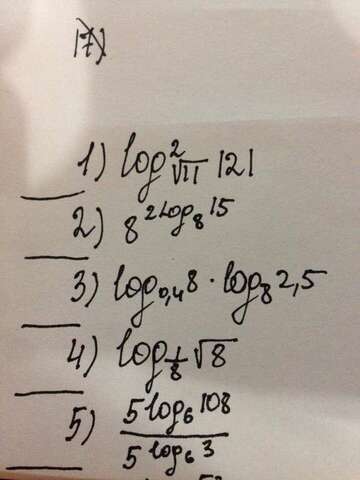 17)
1) log²_√11 121
2) 8^(2log₈15)
3) log₀,₄8 · log₈2,5
4) log_(1/8) √8
5) 5log₆108 / 5^(log₆3)